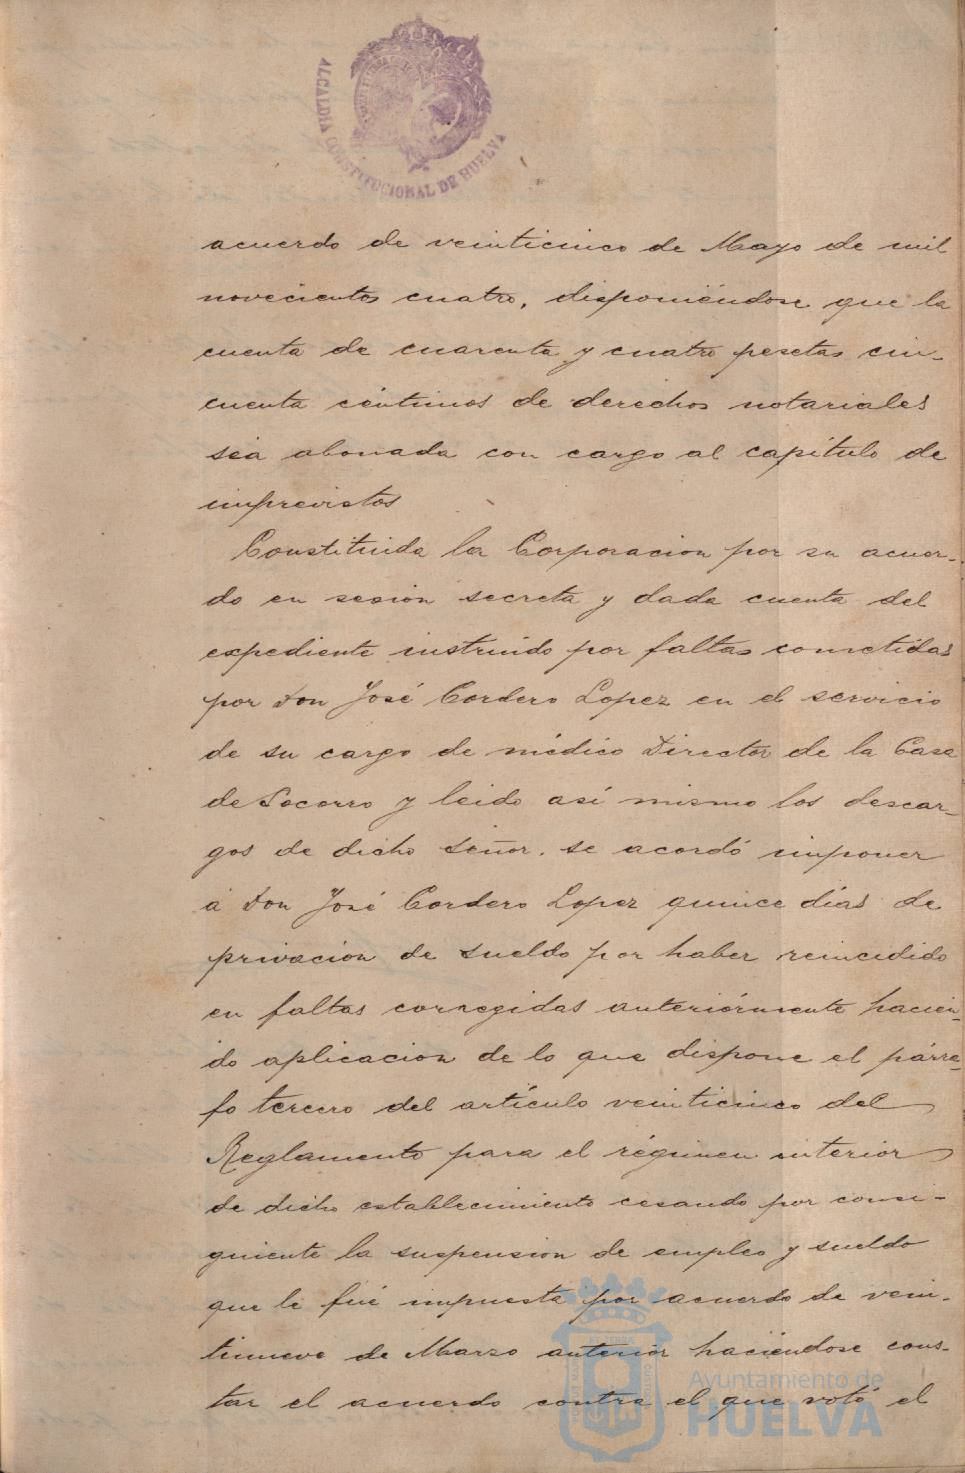 ALCALDIA CONSTITUCIONAL DE HUELVA
acuerdo de veinticinco de Mayo de mil
novecientos cuatro, disponiéndose que la
cuenta de cuarenta y cuatro pesetas cin-
cuenta céntimos de derechos notariales
sea abonada con cargo al capítulo de
imprevistos
Constituida la Corporacion por su acuer-
do en sesion secreta y dada cuenta del
expediente instruido por faltas cometidas
por Don José Cordero Lopez en el servicio
de su cargo de médico Director de la Casa
de Socorro y leido así mismo los descar-
gos de dicho Señor. se acordó imponer
á Don José Cordero Lopez quince días de
privacion de sueldo por haber reincidido
en faltas corregidas anteriórmente hacien-
do aplicacion de lo que dispone el párra-
fo tercero del artículo veinticinco del
Reglamento para el régimen interior
de dicho establecimiento cesando por consi-
guiente la suspension de empleo y sueldo
que le fué impuesta por acuerdo de vein-
tinueve de Marzo anterior haciéndose cons-
tar el acuerdo contra el que votó el
Ayuntamiento de
HUELVA